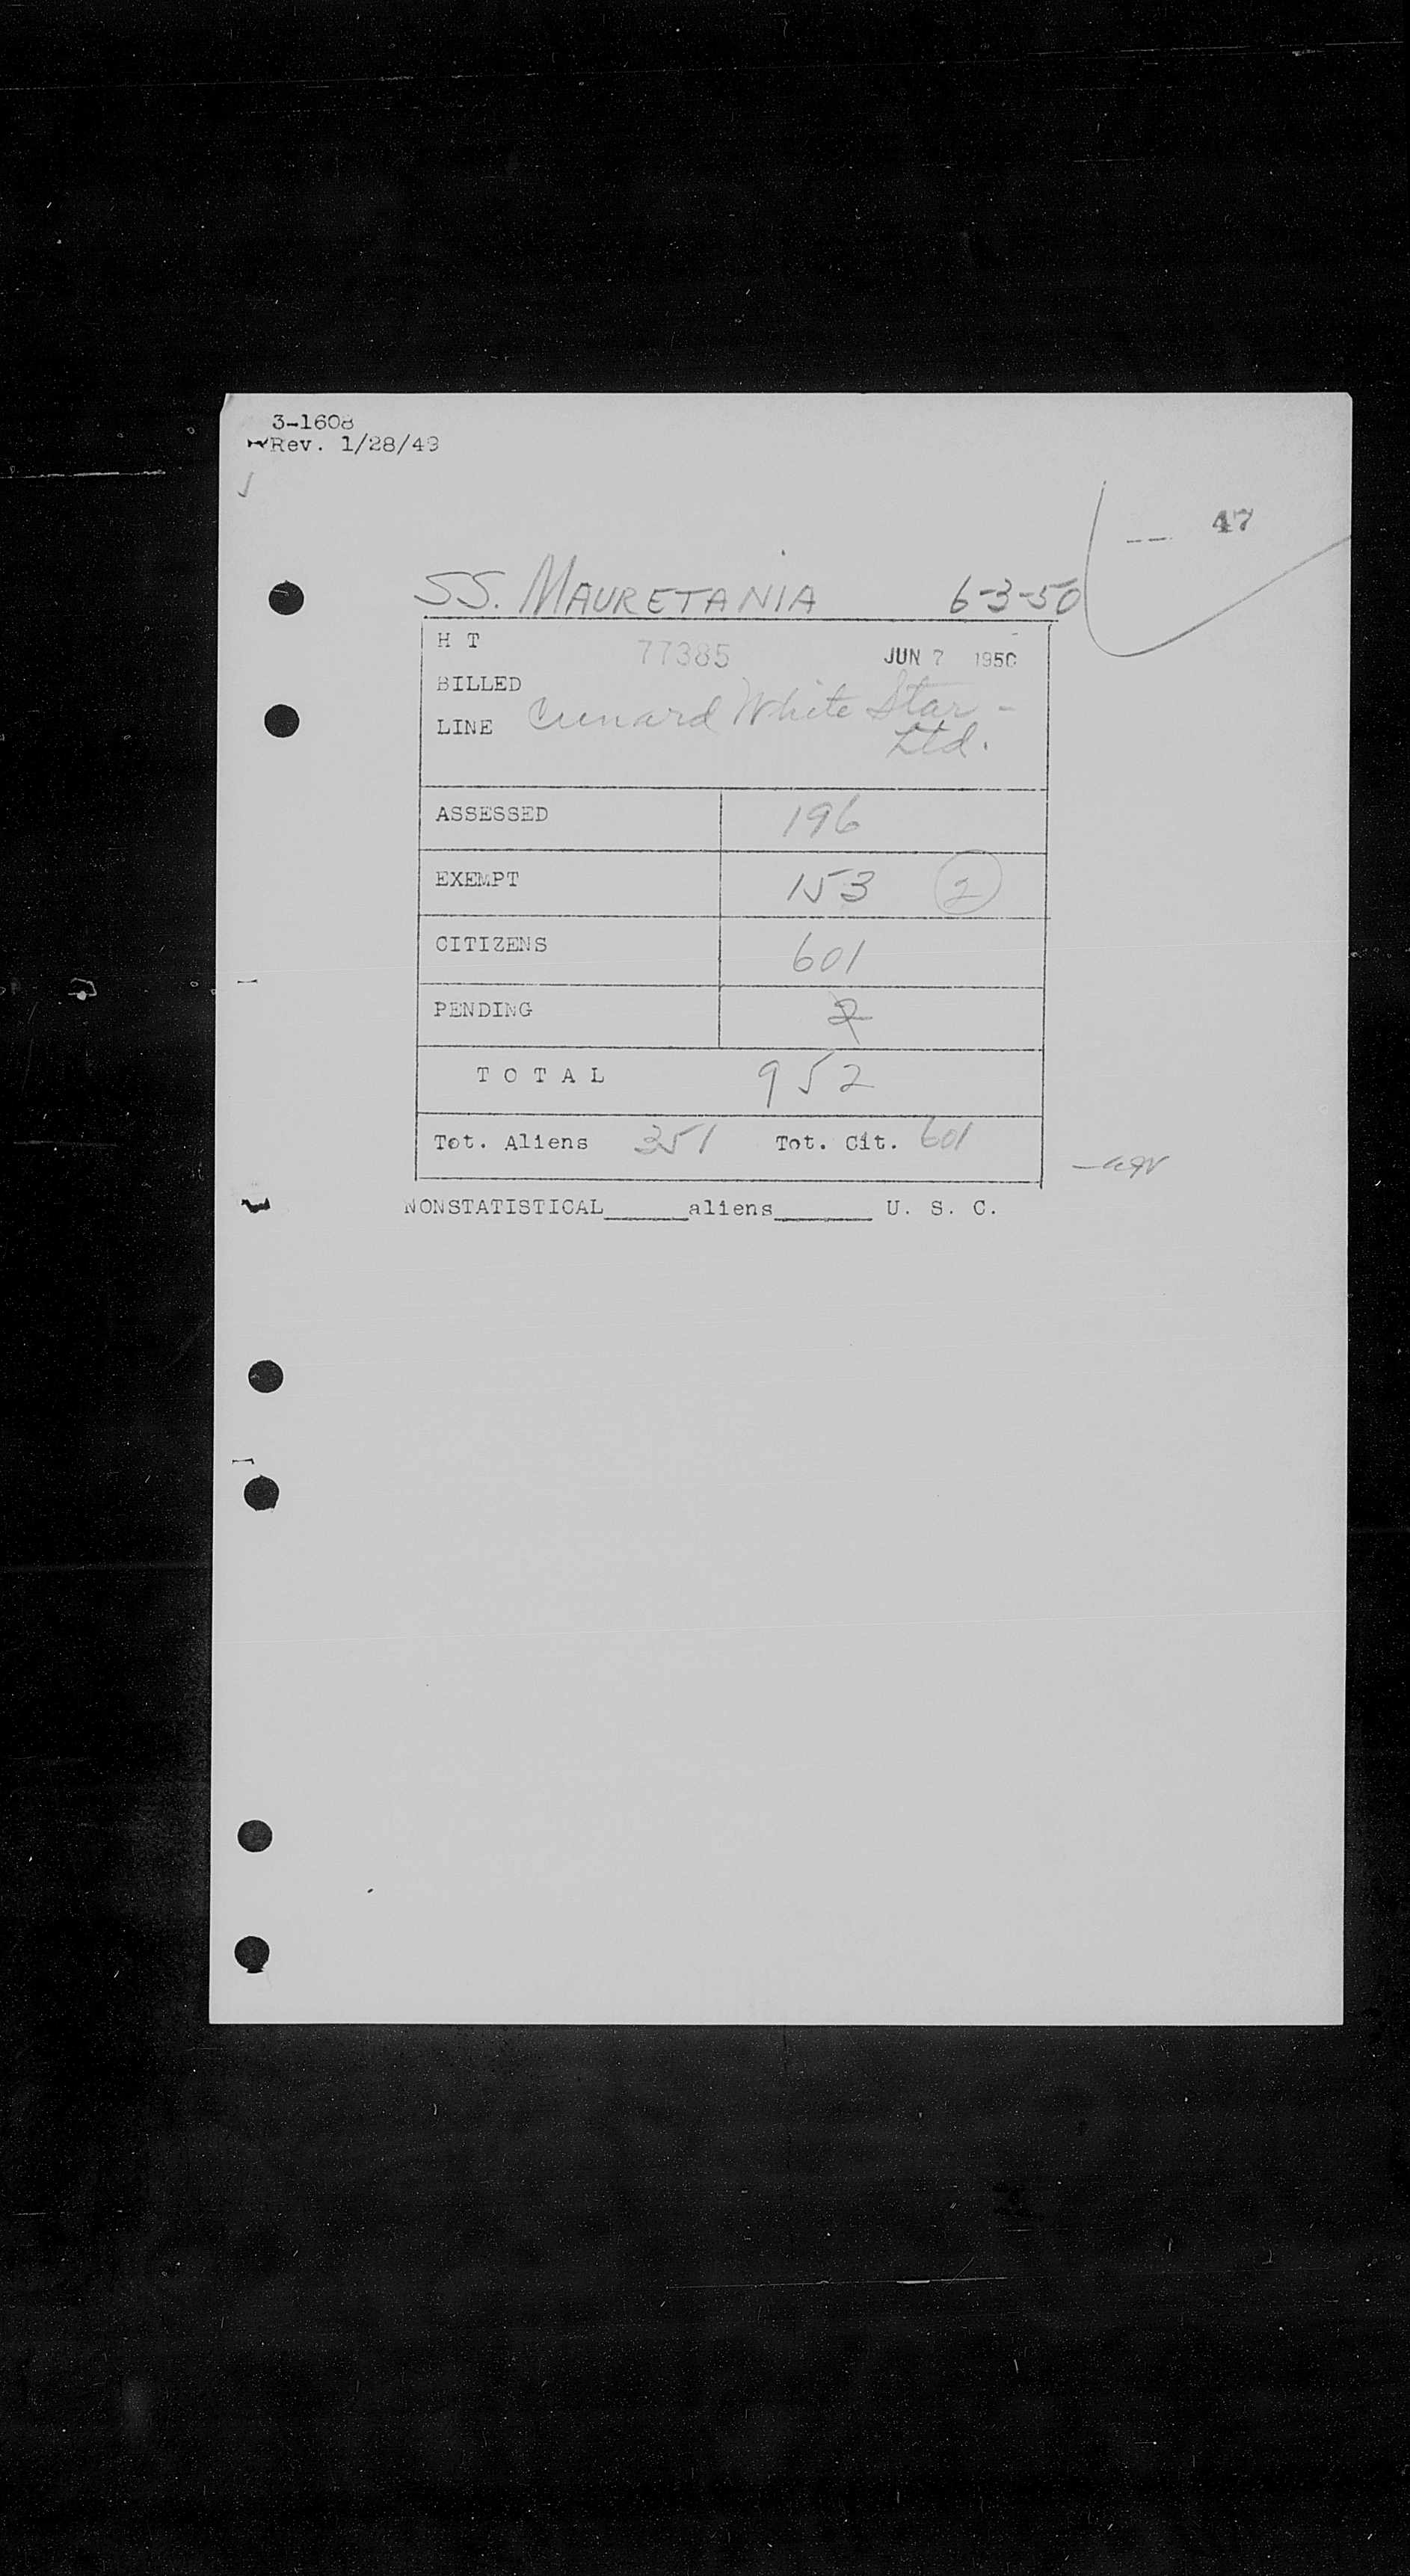 3-1608
Rev. 1/28/49
47
SS. MAURETANIA 6-3-50
H T 77385 JUN 7 1950
BILLED
LINE Cunard White Star -
Ltd.
ASSESSED 196
EXEMPT 153 2
CITIZENS 601
PENDING 2
T O T A L 952
Tot. Aliens 351 Tot. Cit. 601
NONSTATISTICAL______aliens_______ U. S. C.